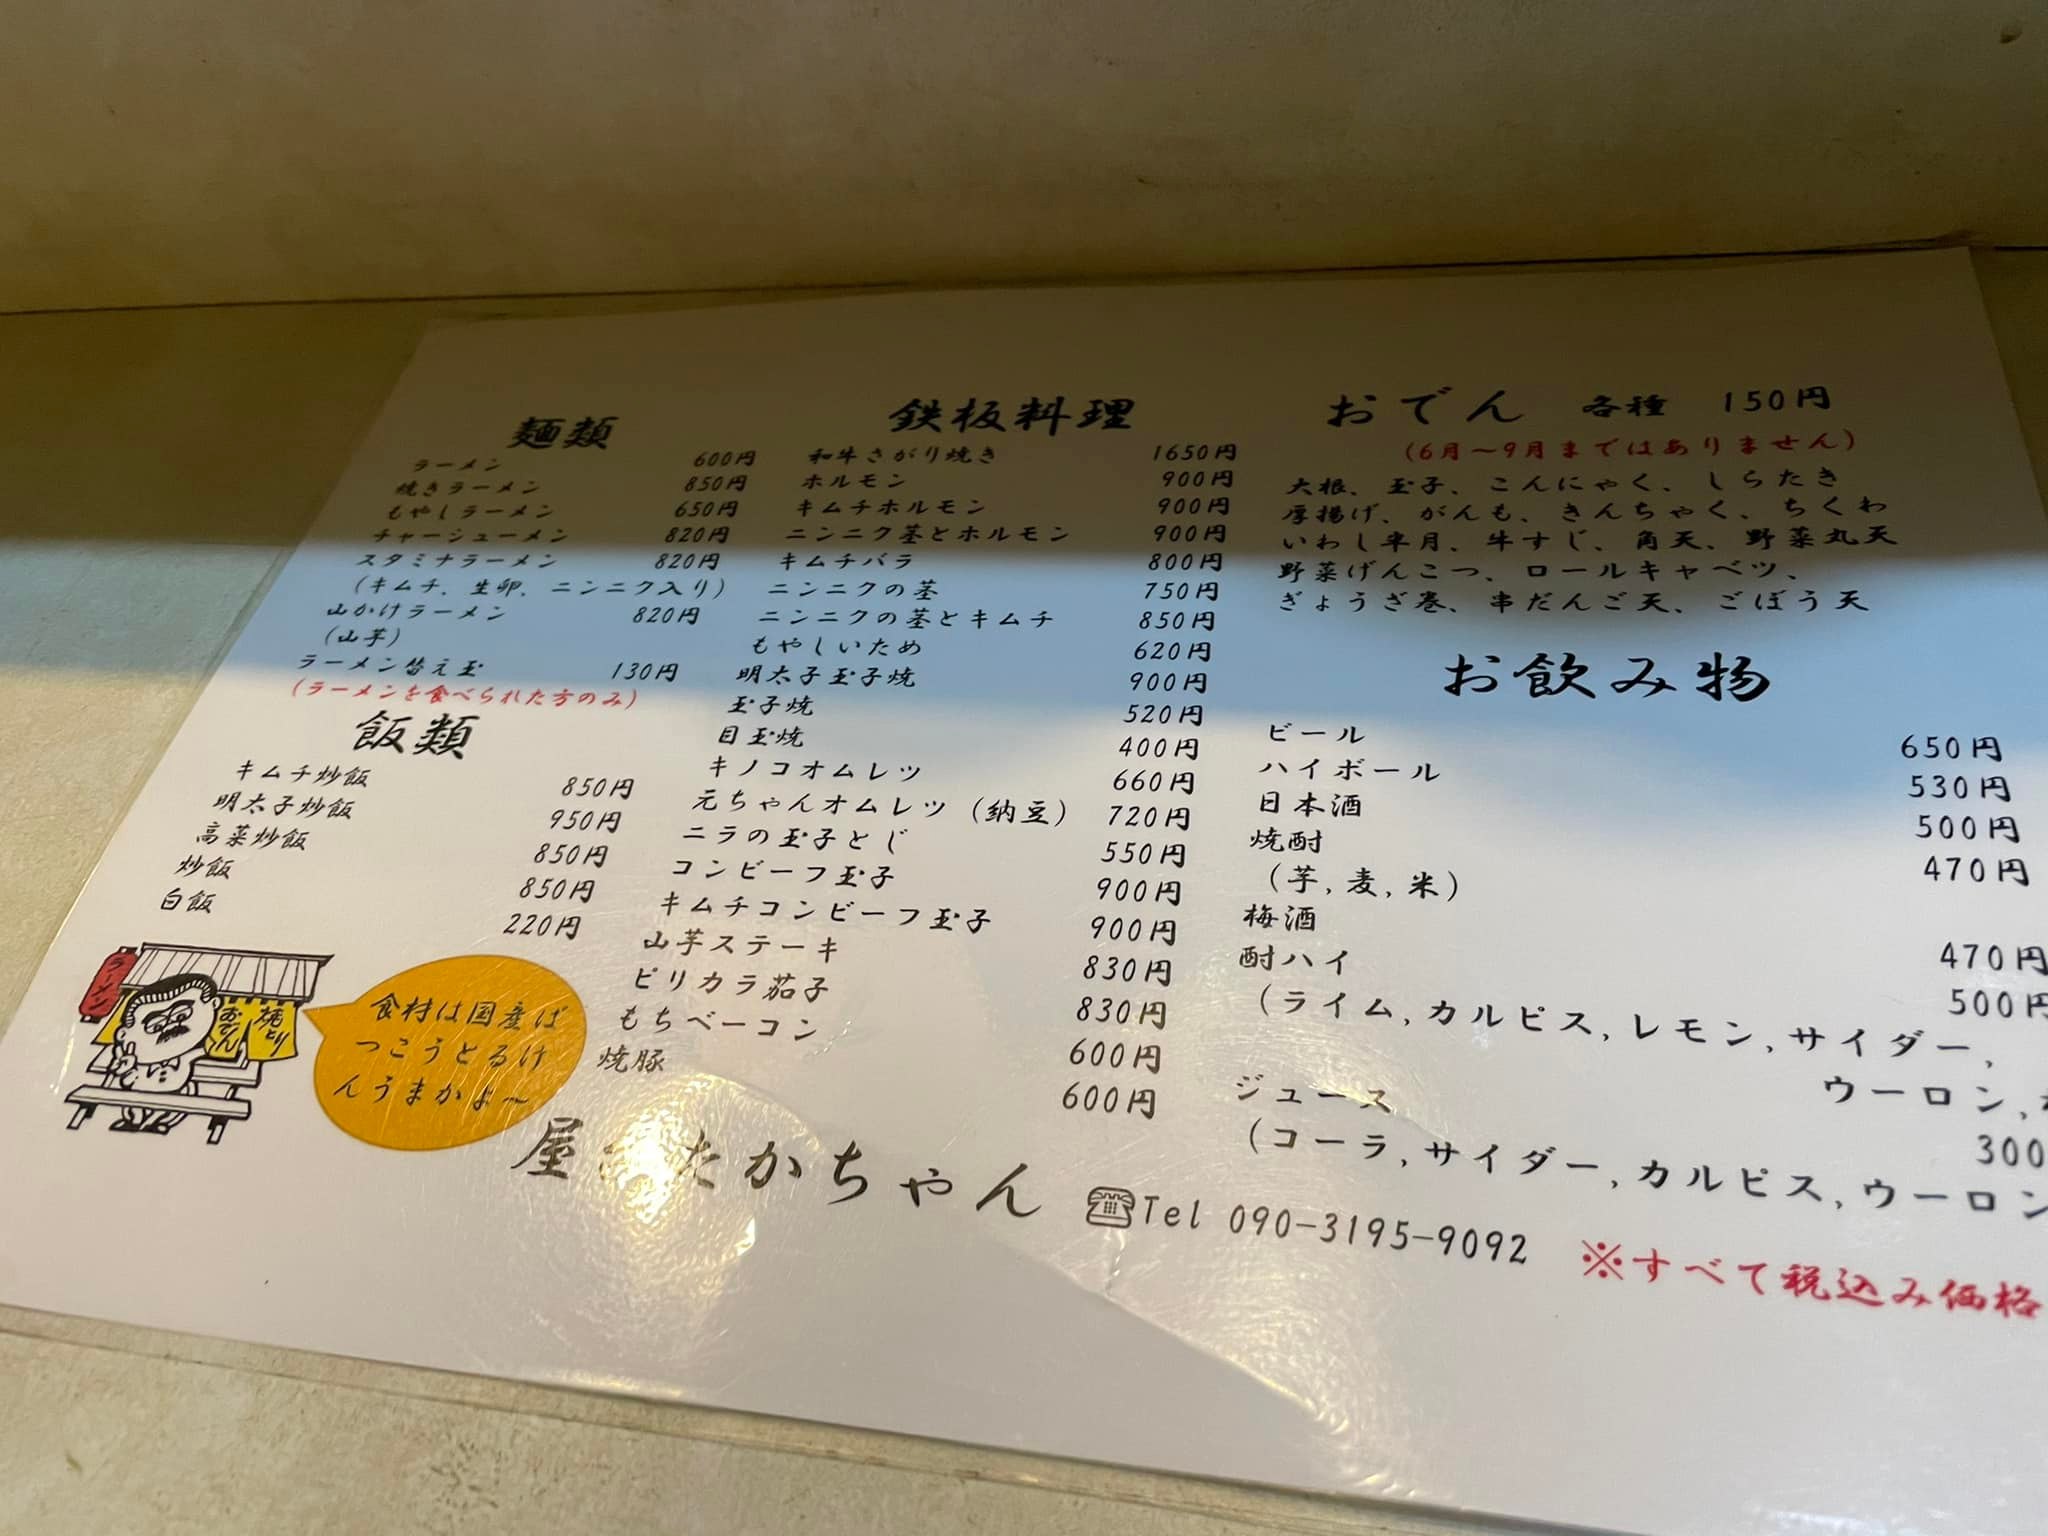 麺類
ラーメン 600円
焼きラーメン 850円
もやしラーメン 650円
チャーシューメン 820円
スタミナラーメン 820円
(キムチ、生卵、ニンニク入り)
山かけラーメン 820円
(山芋)
ラーメン替え玉 130円
(ラーメンを食べられた方のみ)
飯類
キムチ炒飯 850円
明太子炒飯 950円
高菜炒飯 850円
炒飯 850円
白飯 220円
ラーメン
おでん
焼とり
食材は国産ば
つこうとるけ
んうまかよ〜
鉄板料理
和牛さがり焼き 1650円
ホルモン 900円
キムチホルモン 900円
ニンニク茎とホルモン 900円
キムチバラ 800円
ニンニクの茎 750円
ニンニクの茎とキムチ 850円
もやしいため 620円
明太子玉子焼 900円
玉子焼 520円
目玉焼 400円
キノコオムレツ 660円
元ちゃんオムレツ(納豆) 720円
ニラの玉子とじ 550円
コンビーフ玉子 900円
キムチコンビーフ玉子 900円
山芋ステーキ 830円
ピリカラ茄子 830円
もちベーコン 600円
焼豚 600円
おでん 各種 150円
(6月〜9月まではありません)
大根、玉子、こんにゃく、しらたき
厚揚げ、がんも、きんちゃく、ちくわ
いわし半月、牛すじ、角天、野菜丸天
野菜げんこつ、ロールキャベツ、
ぎょうざ巻、串だんご天、ごぼう天
お飲み物
ビール 650円
ハイボール 530円
日本酒 500円
焼酎 470円
(芋,麦,米)
梅酒 470円
酎ハイ 500円
(ライム,カルピス,レモン,サイダー,
ウーロン,
ジュース 300
(コーラ,サイダー,カルピス,ウーロン
屋 たかちゃん ☎Tel 090-3195-9092
※すべて税込み価格